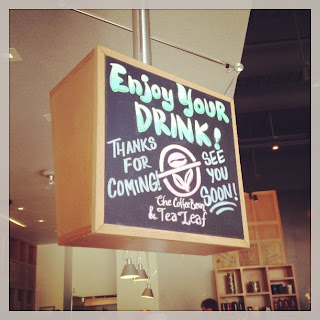 Enjoy YOUR
DRINK!
THANKS
FOR
COMING!
SEE
YOU
SOON!
The Coffee Bean
& Tea Leaf